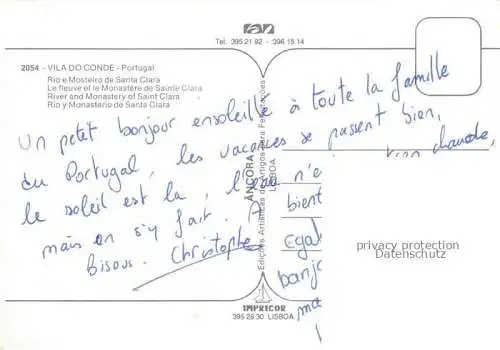 ran
Tel. 395 21 92 - 396 15 14
2054 - VILA DO CONDE - Portugal
Rio e Mosteiro de Santa Clara
Le fleuve et le Monastère de Sainte Clara
River and Monastery of Saint Clara
Rio y Monasterio de Santa Clara
Un petit bonjour ensoleillé à toute la famille
du Portugal, les vacances se passent bien,
le soleil est la, l'eau n'e chaude,
mais on s'y fait. A bient
Bisous. Christophe
égal
banjo
ma
ÂNCORA
Edições Artísticas de Artigos para Papelarias
LISBOA
privacy protection
Datenschutz
IMPRICOR
395 26 30 LISBOA